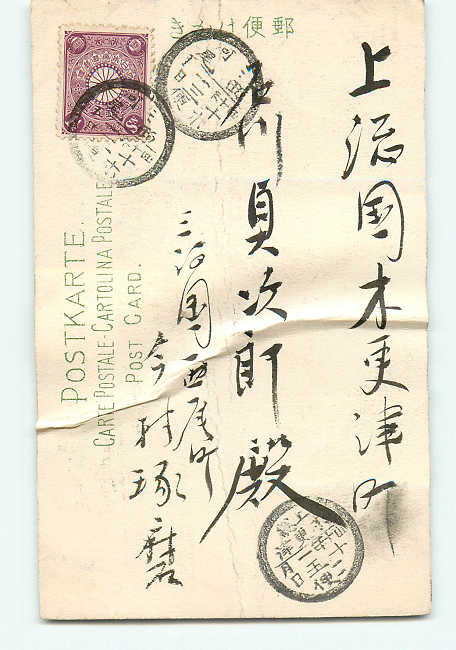 郵便はがき
上総国木更津町
石川貝次郎殿
三河国西尾町
今村琢磨
POSTKARTE.
CARTE POSTALE-CARTOLINA POSTALE
POST CARD.